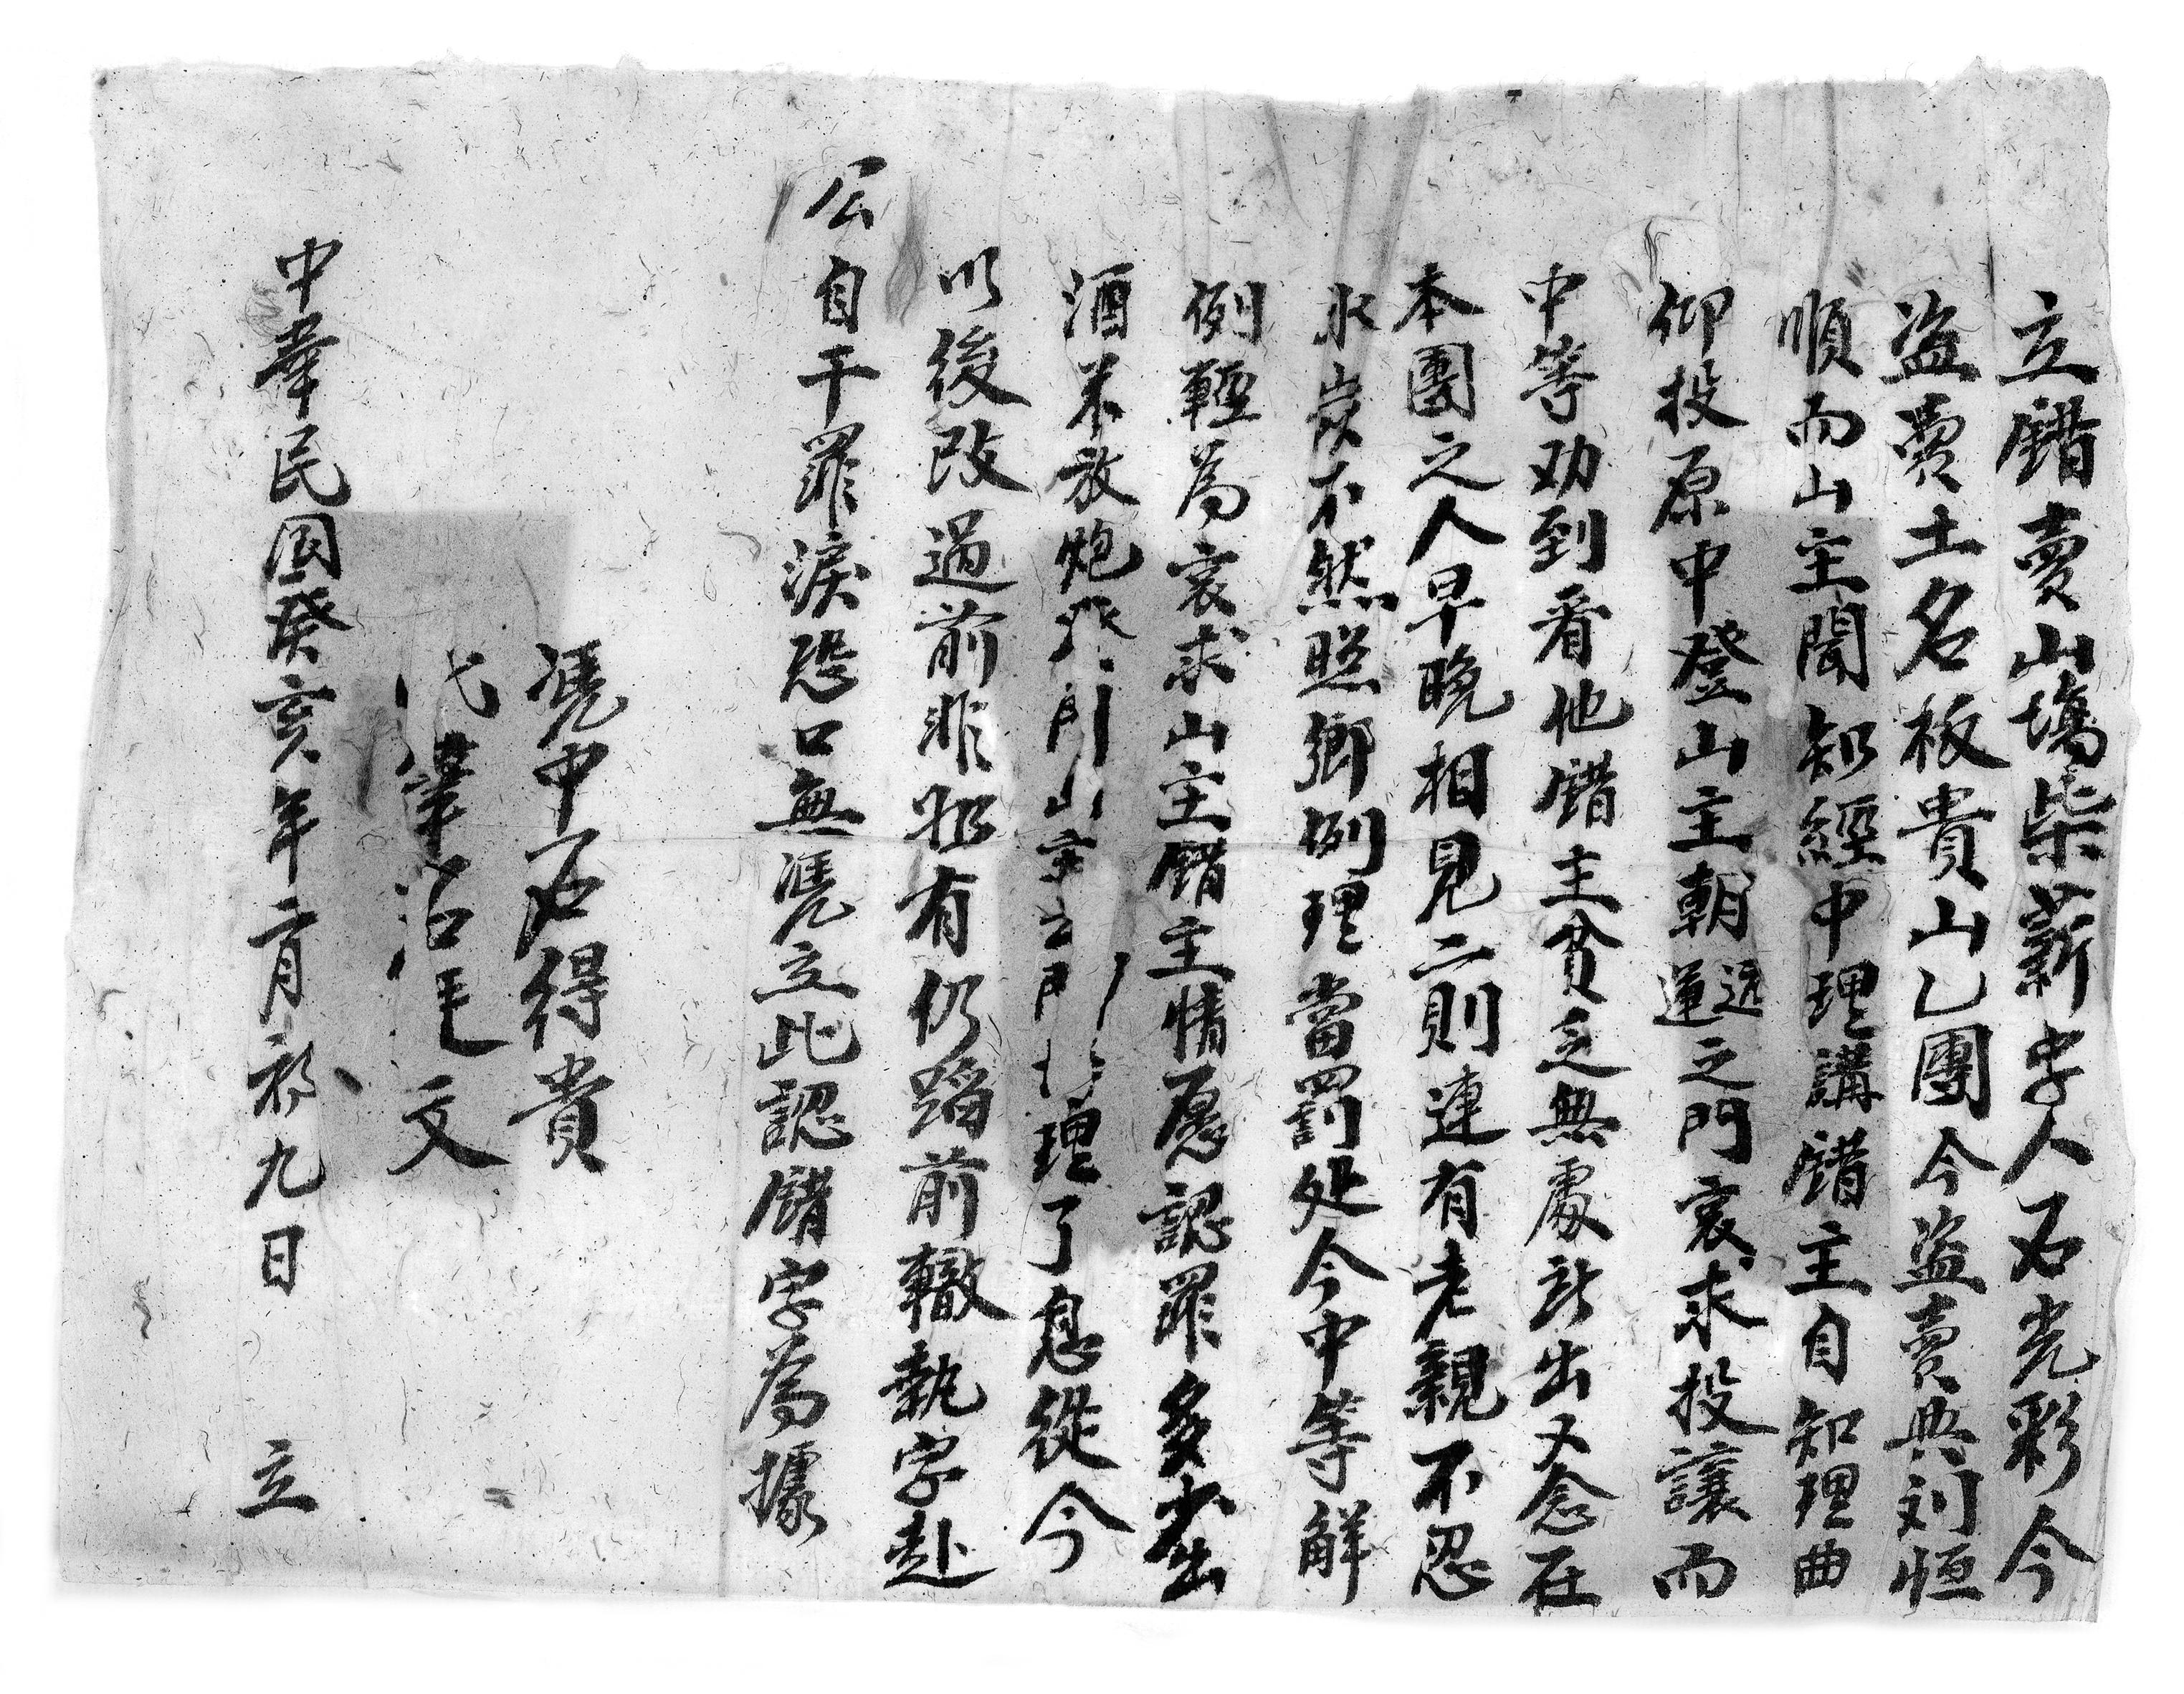 立錯賣山塲柴薪字人石光彩今
盗賣土名板貴山乙團今盗賣與刘恒
順而山主聞知經中理講錯主自知理曲
仰投原中登山主朝運远之門哀求投讓而
中等劝到看他錯主貧乏無處計出又念在
本團之人早晚相見二則連有老親不忍
氷炭不然照鄉例理當罰处今中等觧
例輕為哀求山主錯主情愿認罪多少出
酒米放炮 門山 理了息從今
以後改過前非恐有仍蹈前轍執字赴
公自干罪淚恐口無凴立此認錯字為據
凴中石得貴
代筆 文
中華民國癸亥年二月初九日 立